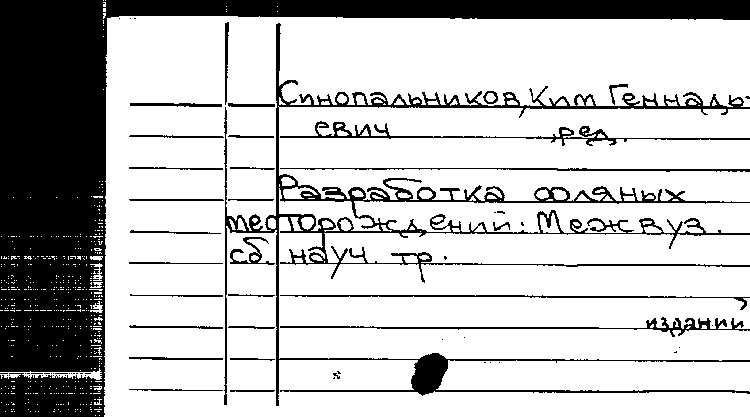 Синопальников, Ким Геннадь-
евич ,ред.
Разработка соляных
месторождений: Межвуз.
сб. науч. тр.
издании